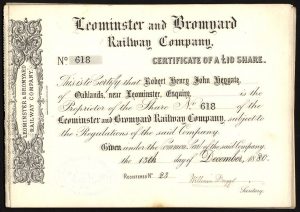 Leominster and Bromyard
Railway Company.
No 618 CERTIFICATE OF A £10 SHARE.
This is to Certify that Robert Henry John Heygate,
of Oaklands, near Leominster, Esquire, is the
Proprietor of the Share No 618 of the
Leominster and Bromyard Railway Company, subject to
the Regulations of the said Company.
Given under the Common Seal of the said Company
the 13th day of December, 1880.
REGISTERED No 23
William
Secretary.
LEOMINSTER & BROMYARD
RAILWAY COMPANY.